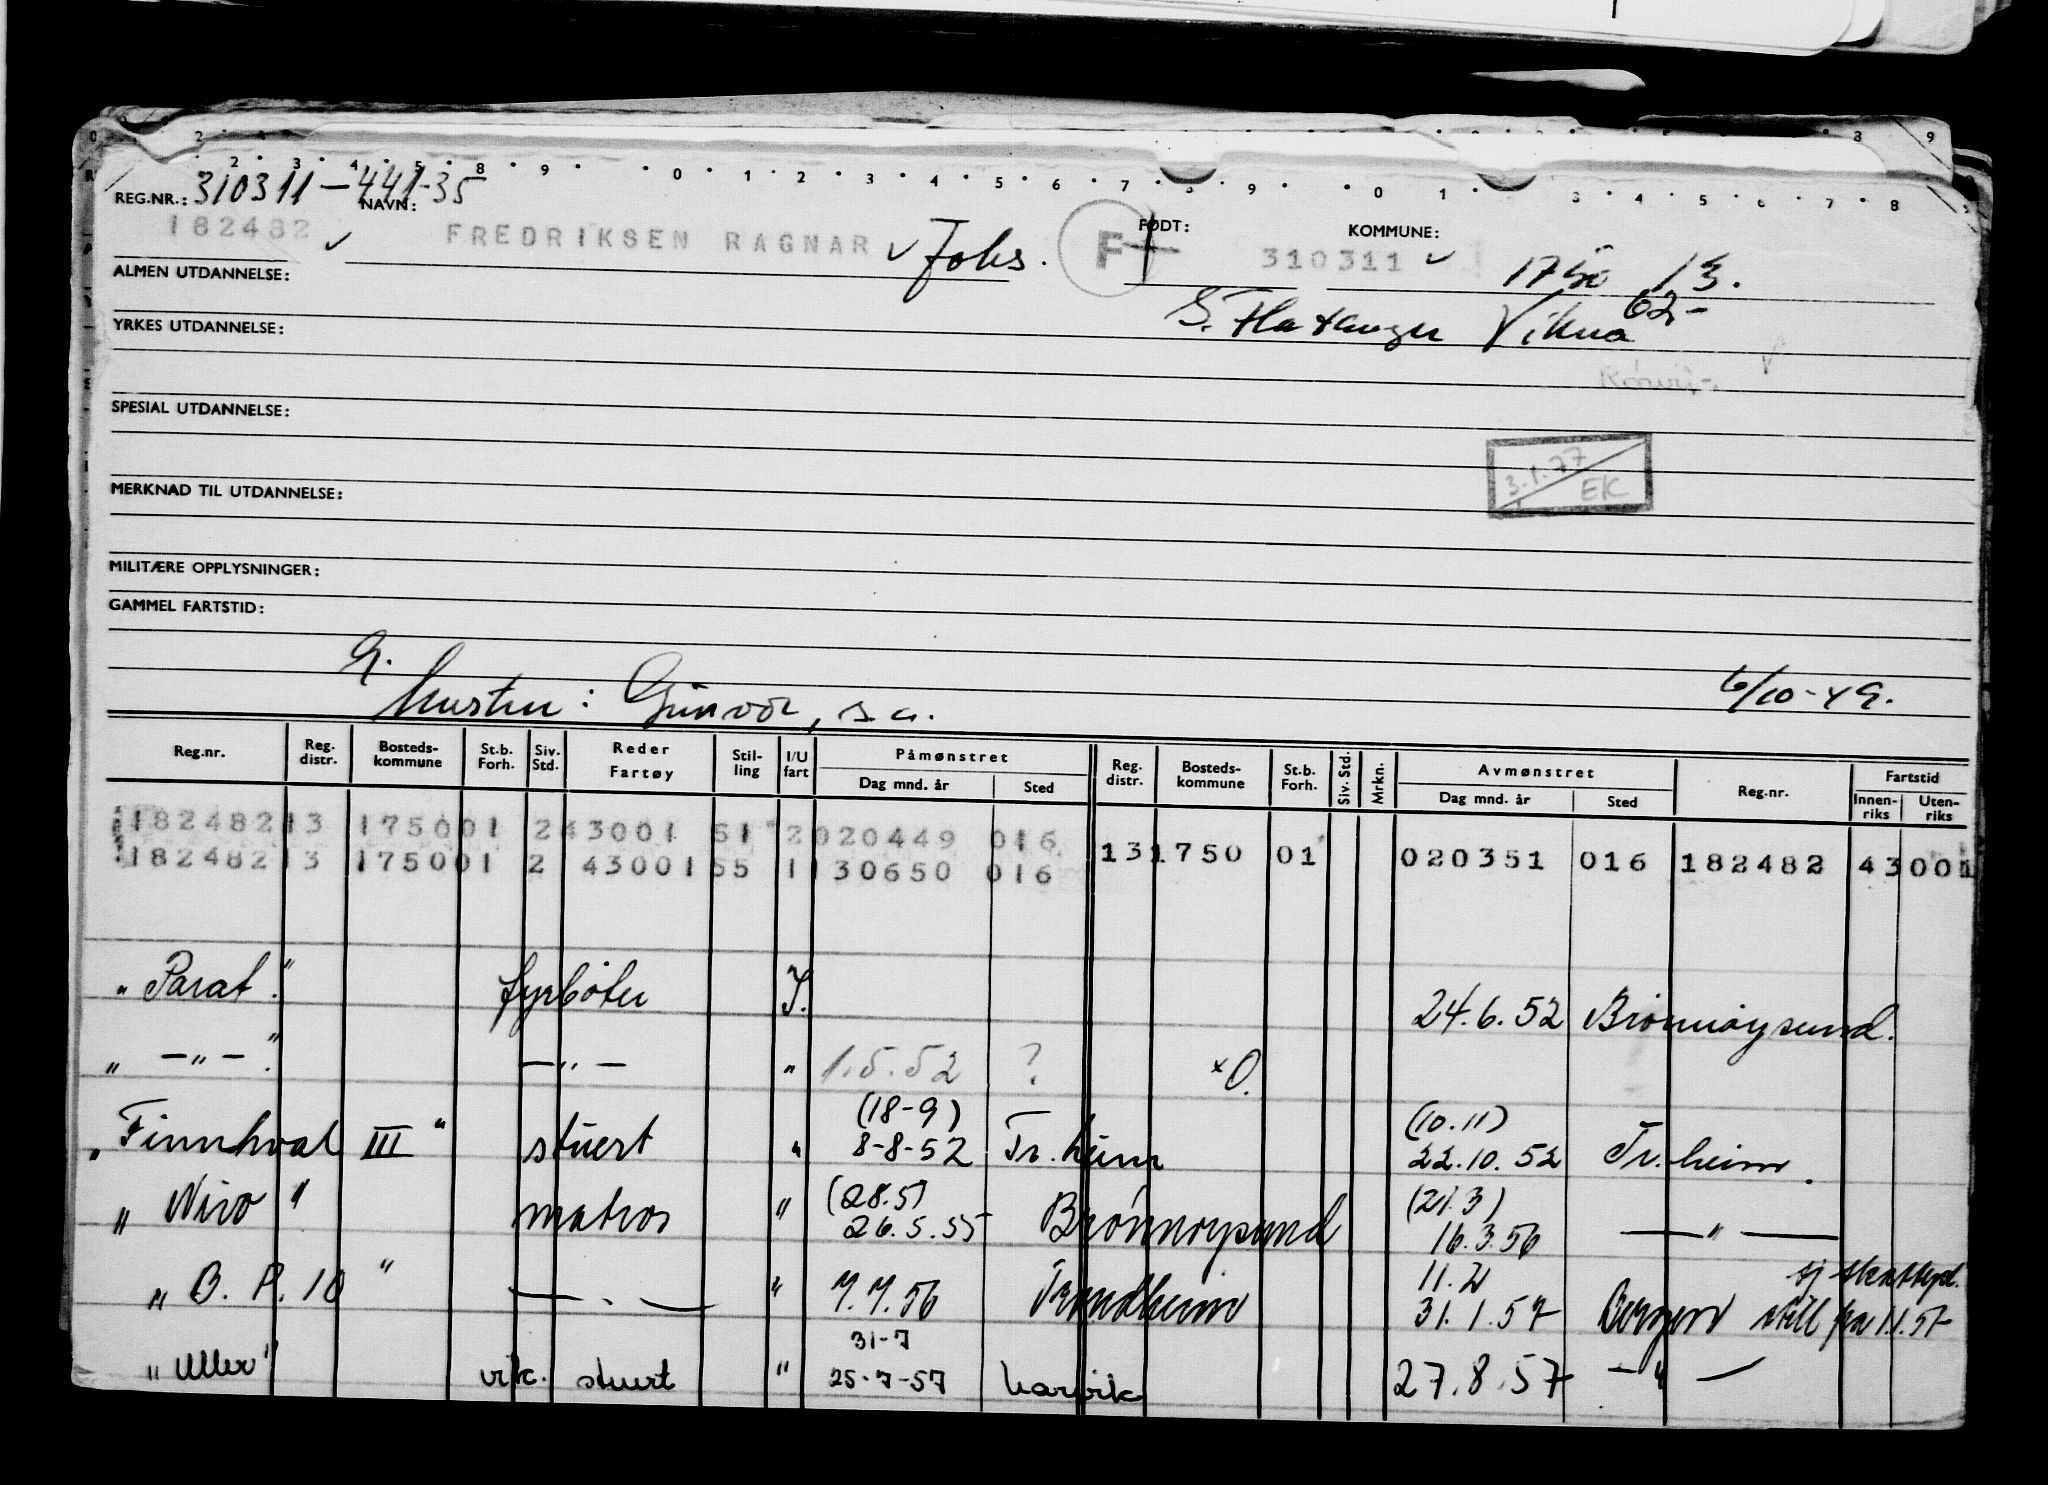 REG.NR.: 310311-441-35
NAVN:
182482 ✓ FREDRIKSEN RAGNAR ✓ Johs. F FØDT: 310311 ✓ KOMMUNE: 1750 13.
ALMEN UTDANNELSE:
S. Flatanger Vikna 62-
YRKES UTDANNELSE:
Rørvik
SPESIAL UTDANNELSE:
3.1.77
EK
MERKNAD TIL UTDANNELSE:
MILITÆRE OPPLYSNINGER:
GAMMEL FARTSTID:
G.
hustru: Gunvor, s.a. 6/10-49.
Reg.nr. Reg. distr. Bosteds-kommune St.b. Forh. Siv. Std. Reder Fartøy Stil-ling I/U fart Påmønstret Dag mnd. år Sted Reg. distr. Bosteds-kommune St.b. Forh. Siv. Std. Mrkn. Avmønstret Dag mnd. år Sted Reg.nr. Fartstid Innen-riks Uten-riks
182482 13 1750 01 2 43001 51 2 020449 016
182482 13 1750 01 2 43001 55 1 130650 016 13 1750 01 020351 016 182482 43001
"Parat." fyrbøter I. 24.6.52 Brønnøysund.
" —"— ." —"— " 1.5.52 ? *O.
(18-9) (10.11)
"Finnhval III" stuert " 8-8-52 Tr.heim 22.10.52 Tr.heim.
(28.5) (21.3)
"Niro" matros " 26.5.55 Brønnøysund 16.3.56 —"—
11.2 sj skattepl.
"B.P. 10" —"— " 7.7.56 Trondheim 31.1.57 Bergen still fra 1.1.57
31-7
"Uller" vik. stuert " 25-7-57 Narvik 27.8.57 —"—